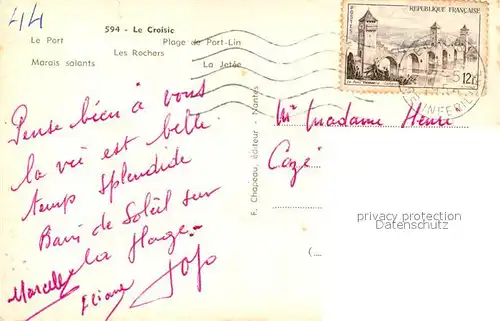 44
594 - Le Croisic
Le Port Plage de Port-Lin
Les Rochers
Marais salants La Jetée
POSTES
RÉPUBLIQUE FRANÇAISE
12f
Pense bien à vous
la vie est belle
temps splendide
Bains de Soleil sur
la Plage.-
Marcelle
Eliane Jojo
F. Chapeau, éditeur - Nantes
Mr Madame Henri
Cazé
privacy protection
DATENSCHUTZ